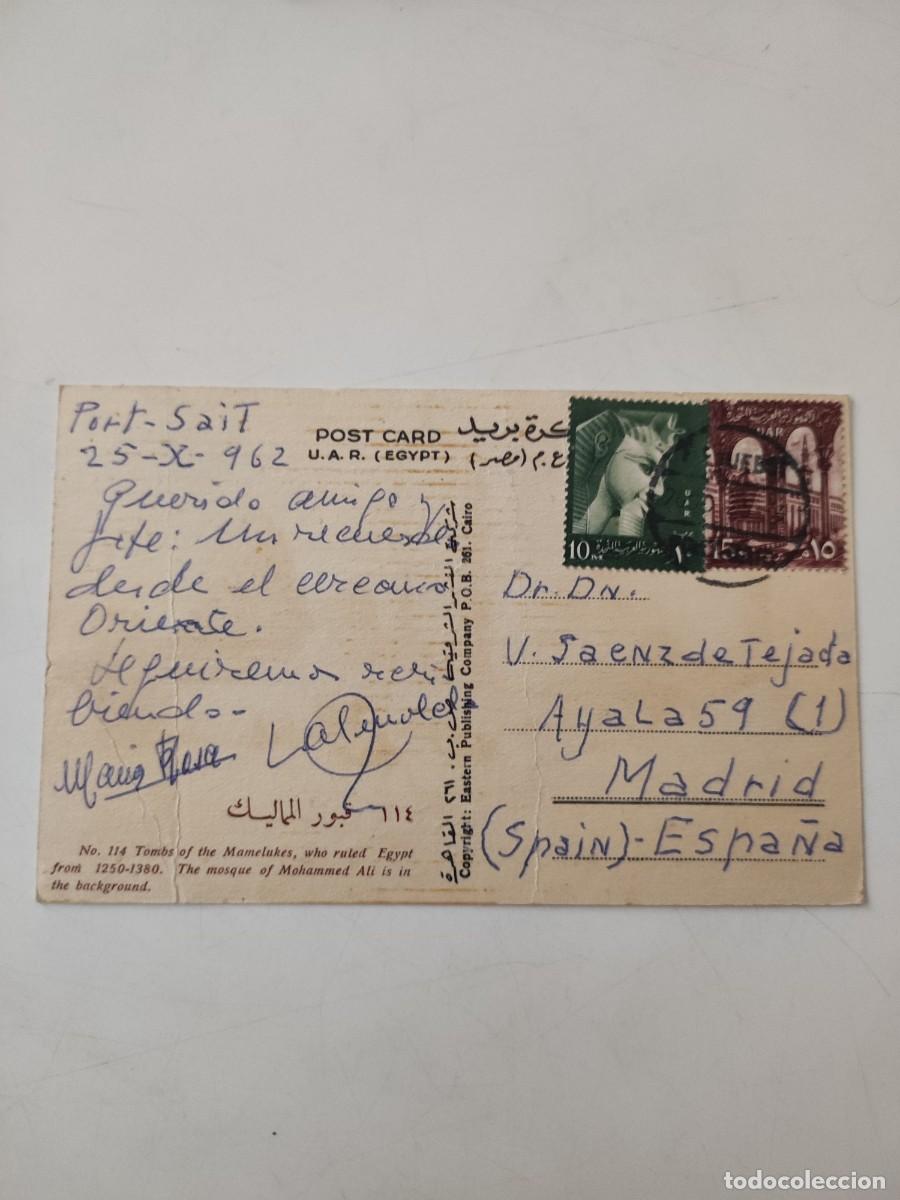 Port-Sait
25-X-962
Querido amigo y
Jefe: Un recuerdo
desde el cercano
Oriente.
Seguiremos escri
biendo-
Maria Rosa
POST CARD
U.A.R. (EGYPT)
كرة بريد
ع.م (مصر)
١١٤ قبور المماليك
No. 114 Tombs of the Mamelukes, who ruled Egypt
from 1250-1380. The mosque of Mohammed Ali is in
the background.
شركة النشر الشرقية ص.ب. ٢٦١ القاهرة
Copyright: Eastern Publishing Company P.O.B. 261. Cairo
UAR
10 M
١٠
UAR
15
١٥
Dr. Dn.
V. Saenz de Tejada
Ayala 59 (1)
Madrid
(Spain)-España
todocoleccion